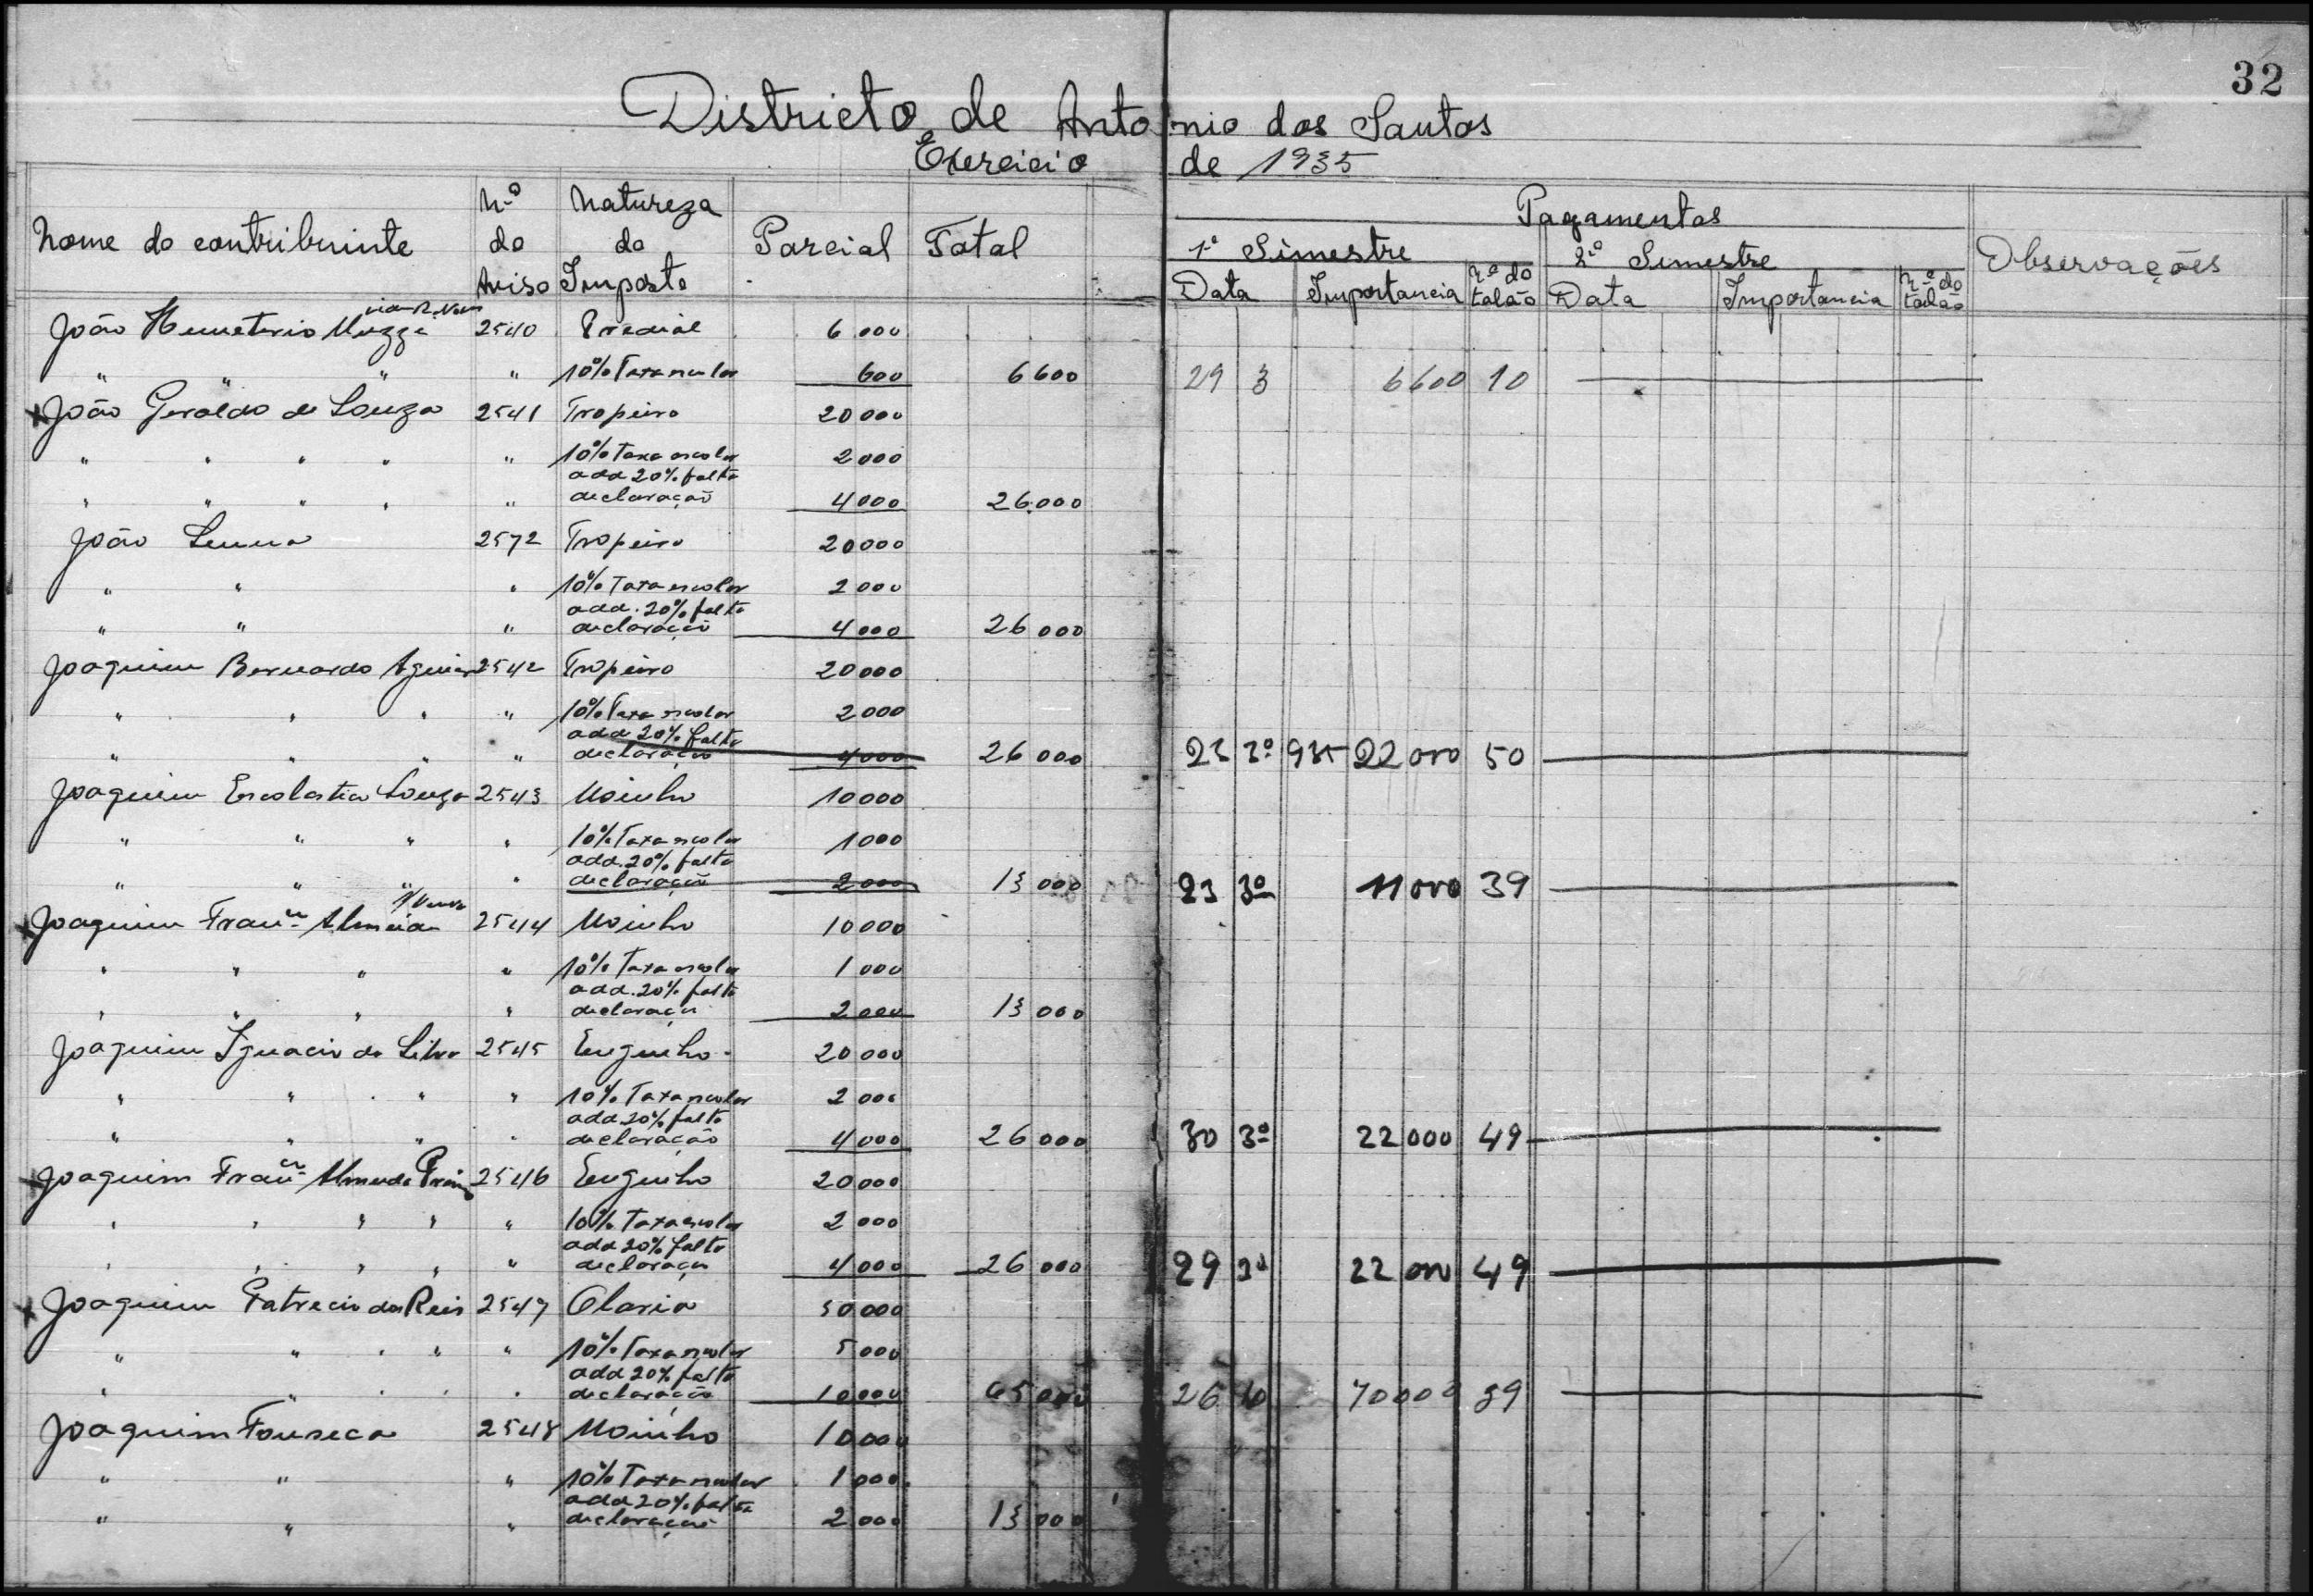 32
Districto de Antonio dos Santos
Exercicio de 1935
Nome do contribuinte Nº do Aviso Natureza do Imposto Parcial Total Pagamentos Observações
1º Simestre 2º Simestre
Data Importancia Nº do talão Data Importancia Nº do talão
João Hemeterio 2540 Predial 6 000
" " " " 10% Taxa escolar 600 6 600 29 3 6600 10
João Geraldo de Souza 2541 Tropeiro 20 000
" " " " " 10% Taxa escolar 2 000
add 20% falta
" " " " " declaração 4 000 26.000
João Senna 2572 Tropeiro 20 000
" " " 10% Taxa escolar 2 000
add. 20% falta
" " " declaração 4 000 26 000
Joaquim Bernardo Aguiar 2542 Tropeiro 20 000
" " " " 10% Taxa escolar 2 000
add 20% falta
" " " " declaração 4 000 26 000 23 3º 935 22 000 50
Joaquim Escolastico Souza 2543 Moinho 10 000
" " " " 10% Taxa escolar 1 000
add. 20% falta
" " " " declaração 2 000 13 000 23 3º 11 000 39
Joaquim Franco Almeida 2544 Moinho 10 000
" " " " 10% Taxa escolar 1 000
add. 20% falta
" " " " declaração 2 000 13 000
Joaquim Ignacio da Silva 2545 Engenho 20 000
" " " " " 10% Taxa escolar 2 000
add 20% falta
" " " " declaração 4 000 26 000 30 3º 22 000 49
Joaquim Franco Almeida 2546 Engenho 20 000
" " " " " 10% Taxa escolar 2 000
add 20% falta
" " " " " declaração 4 000 26 000 29 3º 22 000 49
Joaquim Patrecio dos Reis 2547 Olaria 50 000
" " " " " 10% Taxa escolar 5 000
add 20% falta
" " " " " declaração 10 000 65 000 26 10 70 000 39
Joaquim Fonseca 2548 Moinho 10 000
" " " 10% Taxa escolar 1 000
add 20% falta
" " " declaração 2 000 13 000